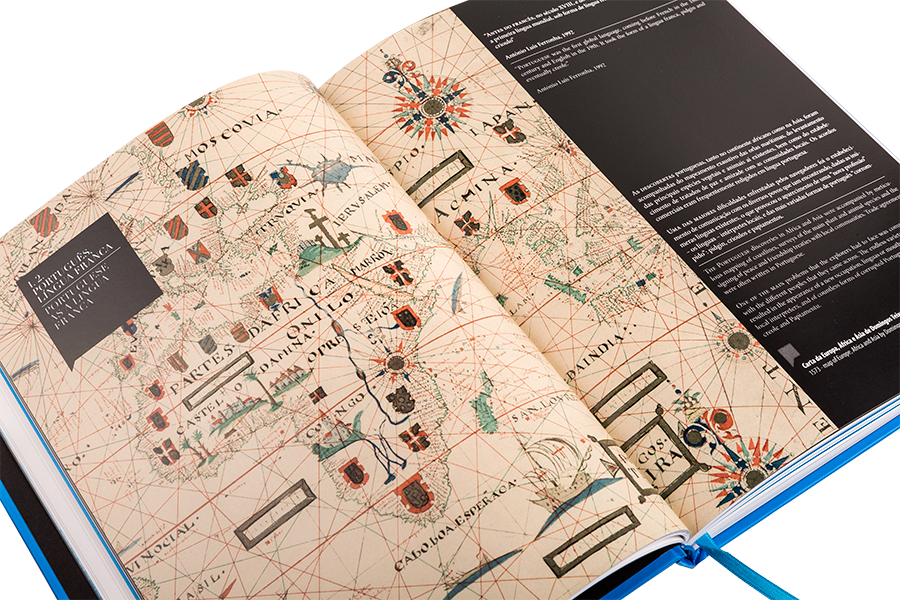 MOSCOVIA.
IERVSALEM
2.
PORTUGUÊS,
LINGUA FRANCA
PORTUGUESE
AS A LINGUA
FRANCA
PARTES DAFRICA
O NILO
O PRESTE IO
CASTELLO DAMINA
CONGO
S. AN. LOVREN
CABO BOA ESPERACA.
ASIL.
IAPAN.
A CHINA.
DAINDIA.
"ANTES DO FRANCÊS, no século XVIII, e do
a primeira língua mundial, sob forma de língua fran
crioulo"
António Luís Ferronha, 1992
"PORTUGUESE was the first global language, coming before French in the 18th
century and English in the 19th. It took the form of a lingua franca, pidgin and
eventually creole."
António Luís Ferronha, 1992
AS DESCOBERTAS portuguesas, tanto no continente africano como na Ásia, foram
acompanhadas do mapeamento exaustivo das orlas marítimas, do levantamento
das principais espécies vegetais e animais aí existentes, bem como do estabele-
cimento de tratados de paz e amizade com as comunidades locais. Os acordos
comerciais eram frequentemente redigidos em língua portuguesa.
UMA DAS MAIORES dificuldades enfrentadas pelos navegadores foi o estabeleci-
mento de comunicação com os diversos povos que iam encontrando. Dadas as inú-
meras línguas existentes, o que promoveu o aparecimento de uma "nova profissão"
os línguas, intérpretes locais, e das mais variadas formas de português corrom-
pido - pidgin, crioulos e papiamentos.
THE PORTUGUESE discoveries in Africa and Asia were accompanied by meticu-
lous mapping of coastlines, surveys of the main plant and animal species and the
signing of peace and friendship treaties with local communities. Trade agreements
were often written in Portuguese.
ONE OF THE MAIN problems that the explorers had to face was communicating
with the different peoples that they came across. The endless variety
resulted in the appearance of a new occupation, línguas or
local interpreters, and of countless forms of corrupted Portuguese
creole and Papiamento.
Carta da Europa, África e Ásia de Domingos Teixeira
1573 - map of Europe, Africa and Asia by Domingos